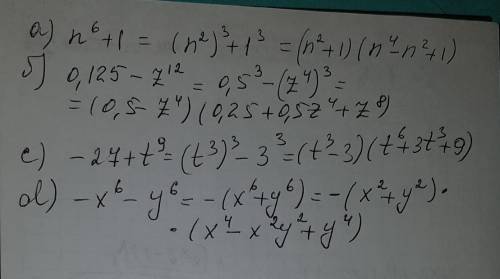 а) n⁶+1 = (n²)³+1³ = (n²+1)(n⁴-n²+1)
б) 0,125 - z¹² = 0,5³-(z⁴)³ =
= (0,5 - z⁴)(0,25+0,5z⁴+z⁸)
c) -27+t⁹ = (t³)³-3³ = (t³-3)(t⁶+3t³+9)
d) -x⁶-y⁶ = -(x⁶+y⁶) = -(x²+y²)·
·(x⁴-x²y²+y⁴)